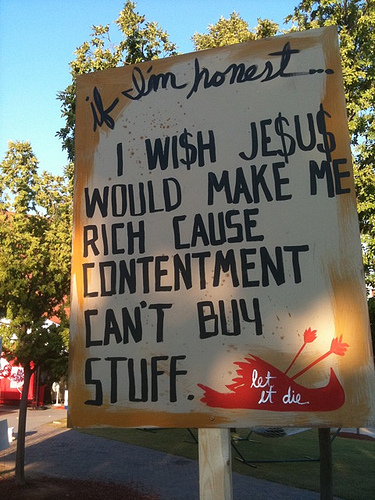 if I'm honest...
I WI$H JE$U$
WOULD MAKE ME
RICH CAUSE
CONTENTMENT
CAN'T BUY
STUFF.
let
it die